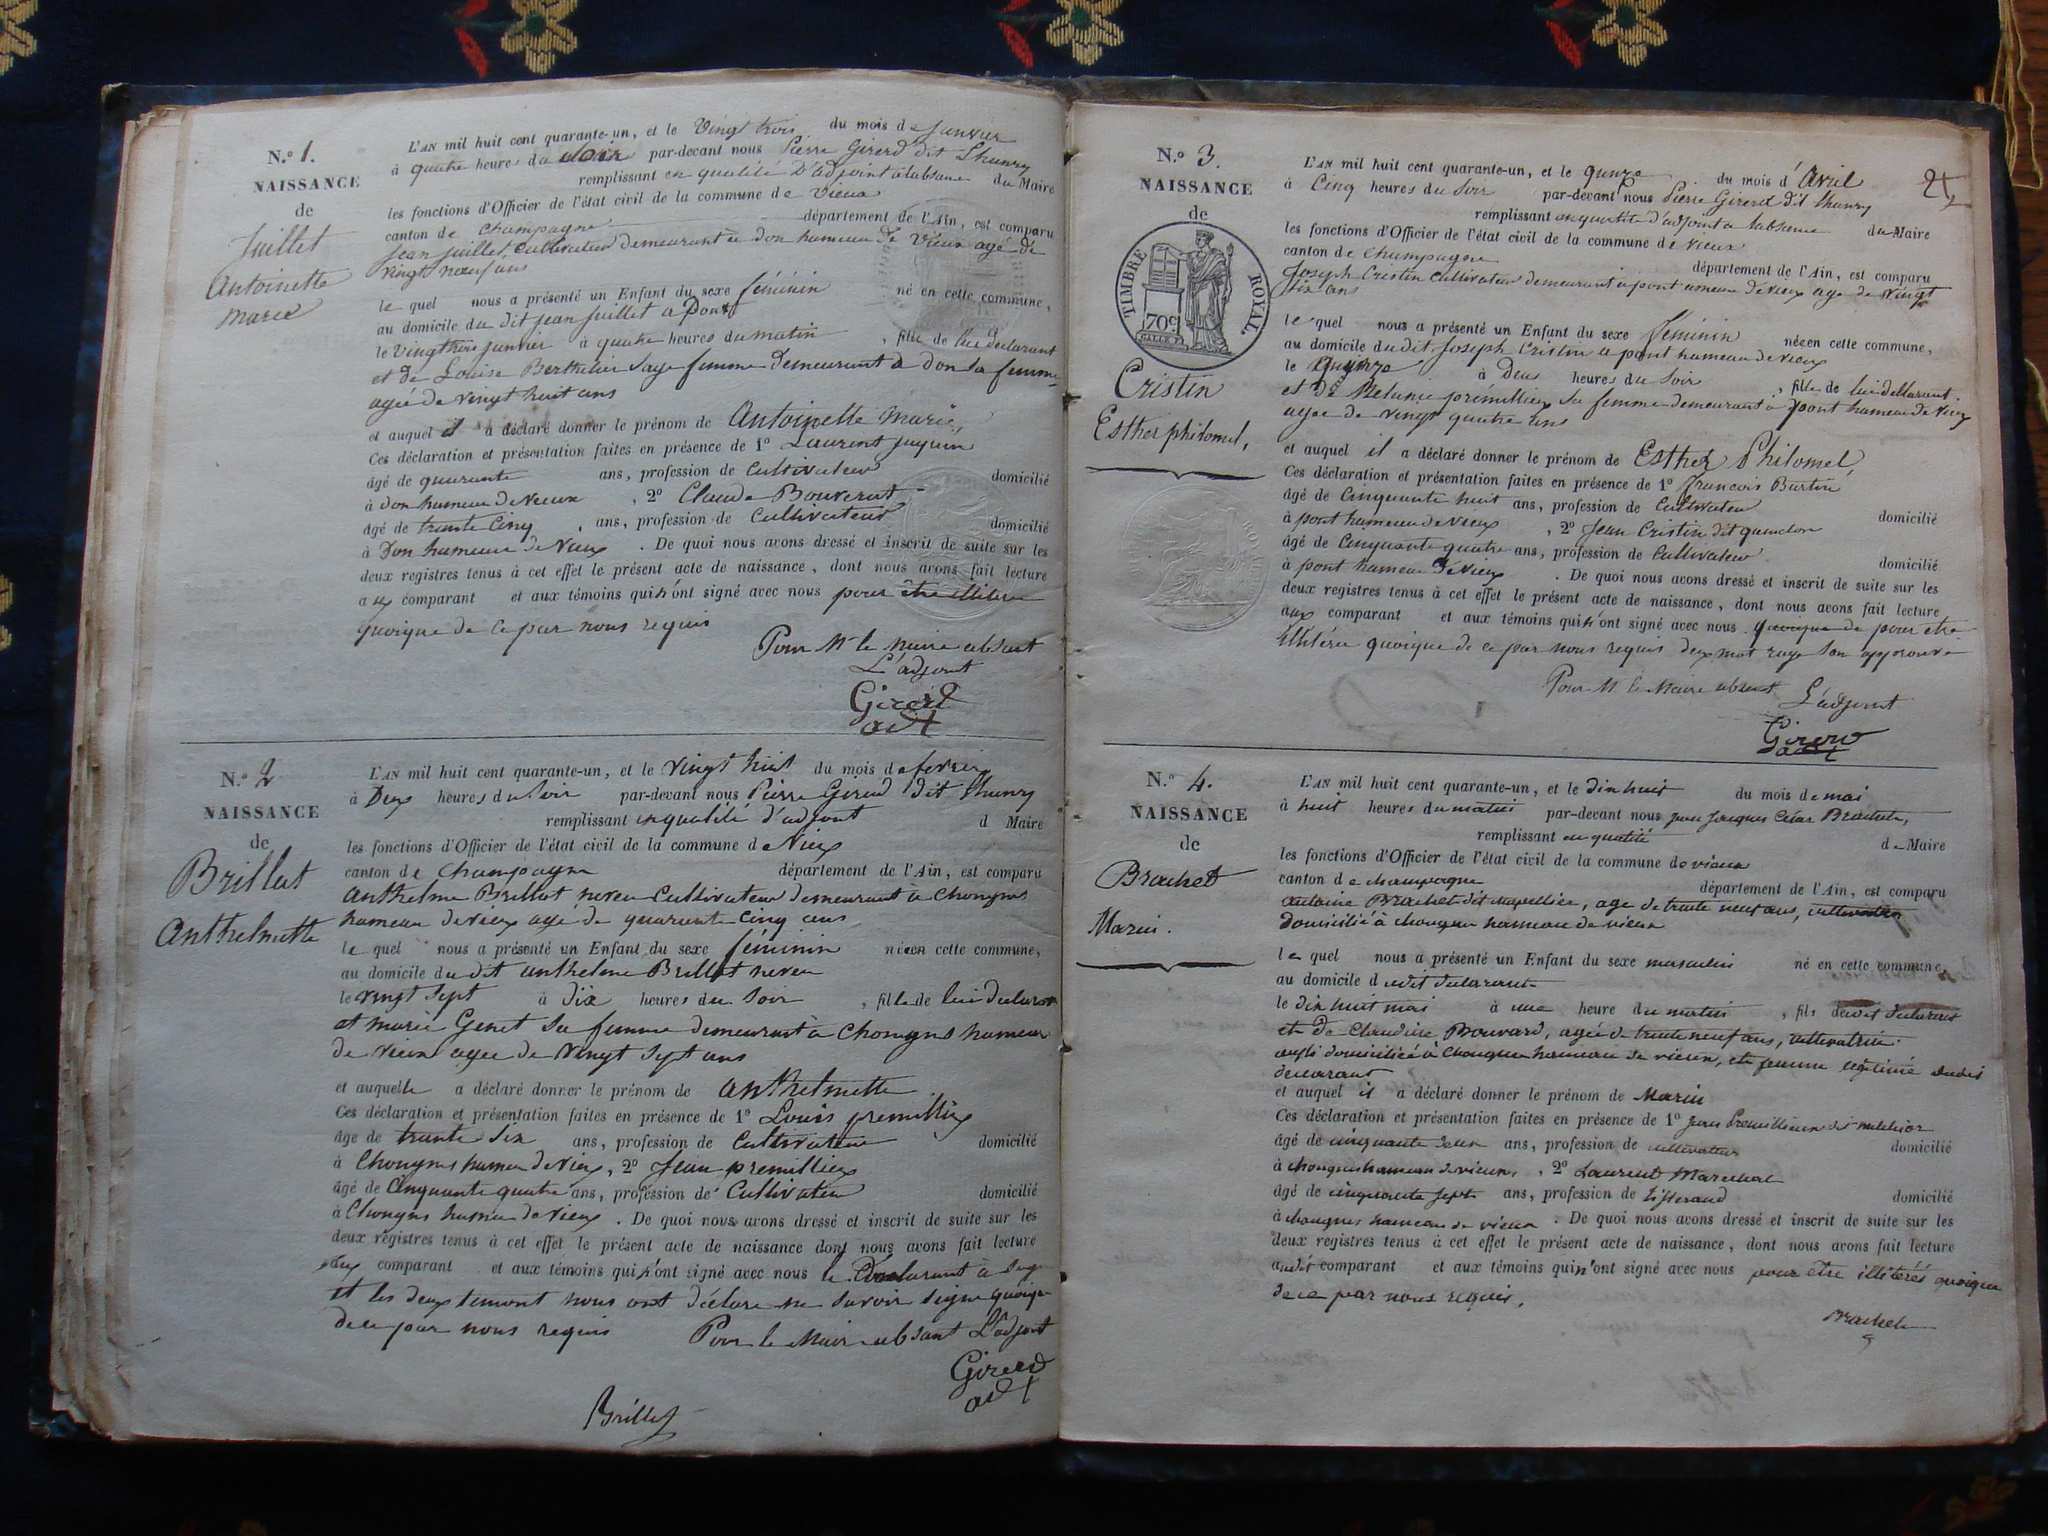 N.o 1.
NAISSANCE
de
Juillet
Antoinette
Marie
L'AN mil huit cent quarante-un, et le Vingt trois du mois de Janvier
à quatre heures du soir par-devant nous Pierre Girerd dit
remplissant en qualité D'adjoint du Maire
les fonctions d'Officier de l'état civil de la commune de Vieux
canton de Champagne département de l'Ain, est comparu
Jean Juillet Cultivateur demeurant à don hameau de Vieux agé de
vingt neuf ans
le quel nous a présenté un Enfant du sexe féminin né en cette commune,
au domicile du dit Jean Juillet a
le Vingt trois janvier à quatre heures du matin , fille de lui declarant
et de Louise Berthelier Sage femme demeurant à don sa femme
agée de vingt huit ans
et auquel il a déclaré donner le prénom de Antoinette Marie,
Ces déclaration et présentation faites en présence de 1o Laurent
âgé de quarante ans, profession de Cultivateur domicilié
à don hameau de Vieux , 2o Claude Bouverat
âgé de trante Cinq , ans, profession de Cultivateur domicilié
à Don hameau de Vieux . De quoi nous avons dressé et inscrit de suite sur les
deux registres tenus à cet effet le présent acte de naissance, dont nous avons fait lecture
aux comparant et aux témoins qui n'ont signé avec nous pour être
quoique de ce par nous requis
Pour Mr le maire absant
L'adjoint
Girerd
adt
N.o 2
NAISSANCE
de
Brillat
Anthelmette
L'AN mil huit cent quarante-un, et le vingt huit du mois de fevrier
à Deux heures du Soir par-devant nous Pierre Girerd dit
remplissant en qualité d'adjont d Maire
les fonctions d'Officier de l'état civil de la commune de Vieux
canton de Champagne département de l'Ain, est comparu
Anthelme Brillat neveu Cultivateur demeurant à Chongnes
hameau de vieux agé de quarante Cinq ans
le quel nous a présenté un Enfant du sexe féminin née en cette commune,
au domicile du dit anthelme Brillat neveu
le vingt sept à dix heures du Soir , fille de lui declarant
et marie Genet sa femme demeurant à Chongnes hameau
de vieux agee de Vingt Sept ans
et auquelle a déclaré donner le prénom de anthelmette
Ces déclaration et présentation faites en présence de 1o Louis premillieux
âge de trante Six ans, profession de Cultivateur domicilié
à Chongnes hameau de Vieux, 2o Jean premillieux
âgé de Cinquante quatre ans, profession de Cultivateur domicilié
à Chongnes hameau de Vieux . De quoi nous avons dressé et inscrit de suite sur les
deux registres tenus à cet effet le présent acte de naissance dont nous avons fait lecture
aux comparant et aux témoins qui n'ont signé avec nous le Declarant a
et les deux temont nous ont déclare ne savoir signe quoique
de ce par nous requis Pour le Maire absant L'adjont
Girerd
adt
Brillat
N.o 3.
NAISSANCE
de
TIMBRE ROYAL.
70c
Cristin
Esther philomel,
25
L'AN mil huit cent quarante-un, et le quinze du mois d'Avril
à Cinq heures du Soir par-devant nous Pierre Girerd dit
remplissant en qualité d'adjoint a labsence du Maire
les fonctions d'Officier de l'état civil de la commune de vieux
canton de Champagne département de l'Ain, est comparu
Joseph Cristin Cultivateur demeurant à pont ameau de vieux age de vingt
six ans
le quel nous a présenté un Enfant du sexe féminin née en cette commune,
au domicile du dit Joseph Cristin a pont hameau de vieux
le Quinze à Deux heures du Soir , fille de lui declarant
et de Melanie prémillieux sa femme demeurant à pont hameau de vieux
agee de vingt quatre ans
et auquel il a déclaré donner le prénom de Esther Philomel,
Ces déclaration et présentation faites en présence de 1o francois
âgé de Cinquante huit ans, profession de Cultivateur
à pont hameau de vieux , 2o Jean Cristin dit domicilié
âgé de Cinquante quatre ans, profession de Cultivateur
à pont hameau de Vieux . De quoi nous avons dressé et inscrit de suite sur les domicilié
deux registres tenus à cet effet le présent acte de naissance, dont nous avons fait lecture
aux comparant et aux témoins qui n'ont signé avec nous quoique de pour etre
illitéré quoique de ce par nous requis deux mot rayé son approuve
Pour M. le Maire absent L'adjont
Girerd
adt
N.o 4.
NAISSANCE
de
Brachet
Marin.
L'AN mil huit cent quarante-un, et le dix huit du mois de mai
à huit heures du matin par-devant nous Jean Jacques César Brachet,
remplissant en qualité de Maire
les fonctions d'Officier de l'état civil de la commune de vieux
canton de champagne département de l'Ain, est comparu
antoine Brachet dit, age de trente neuf ans, cultivateur
domicilié à chongnes hameau de vieux
le quel nous a présenté un Enfant du sexe masculin né en cette commune,
au domicile dudit declarant
le dix huit mai à une heure du matin , fils dudit declarant
et de Claudine Bouvard, agée de trente neuf ans, cultivatrice
aussi domiciliée à Chongnes hameau de vieux, et femme légitime dudit
declarant
et auquel il a déclaré donner le prénom de Marin
Ces déclaration et présentation faites en présence de 1o Jean Premillieux dit melchior
âgé de cinquante deux ans, profession de cultivateur domicilié
à chongnes hameau de vieux , 2o Laurent Marechal
âgé de cinquante sept ans, profession de tisserand domicilié
à chongnes hameau de vieux . De quoi nous avons dressé et inscrit de suite sur les
deux registres tenus à cet effet le présent acte de naissance, dont nous avons fait lecture
audit comparant et aux témoins qui n'ont signé avec nous pour etre illitérés quoique
de ce par nous requis.
Brachet